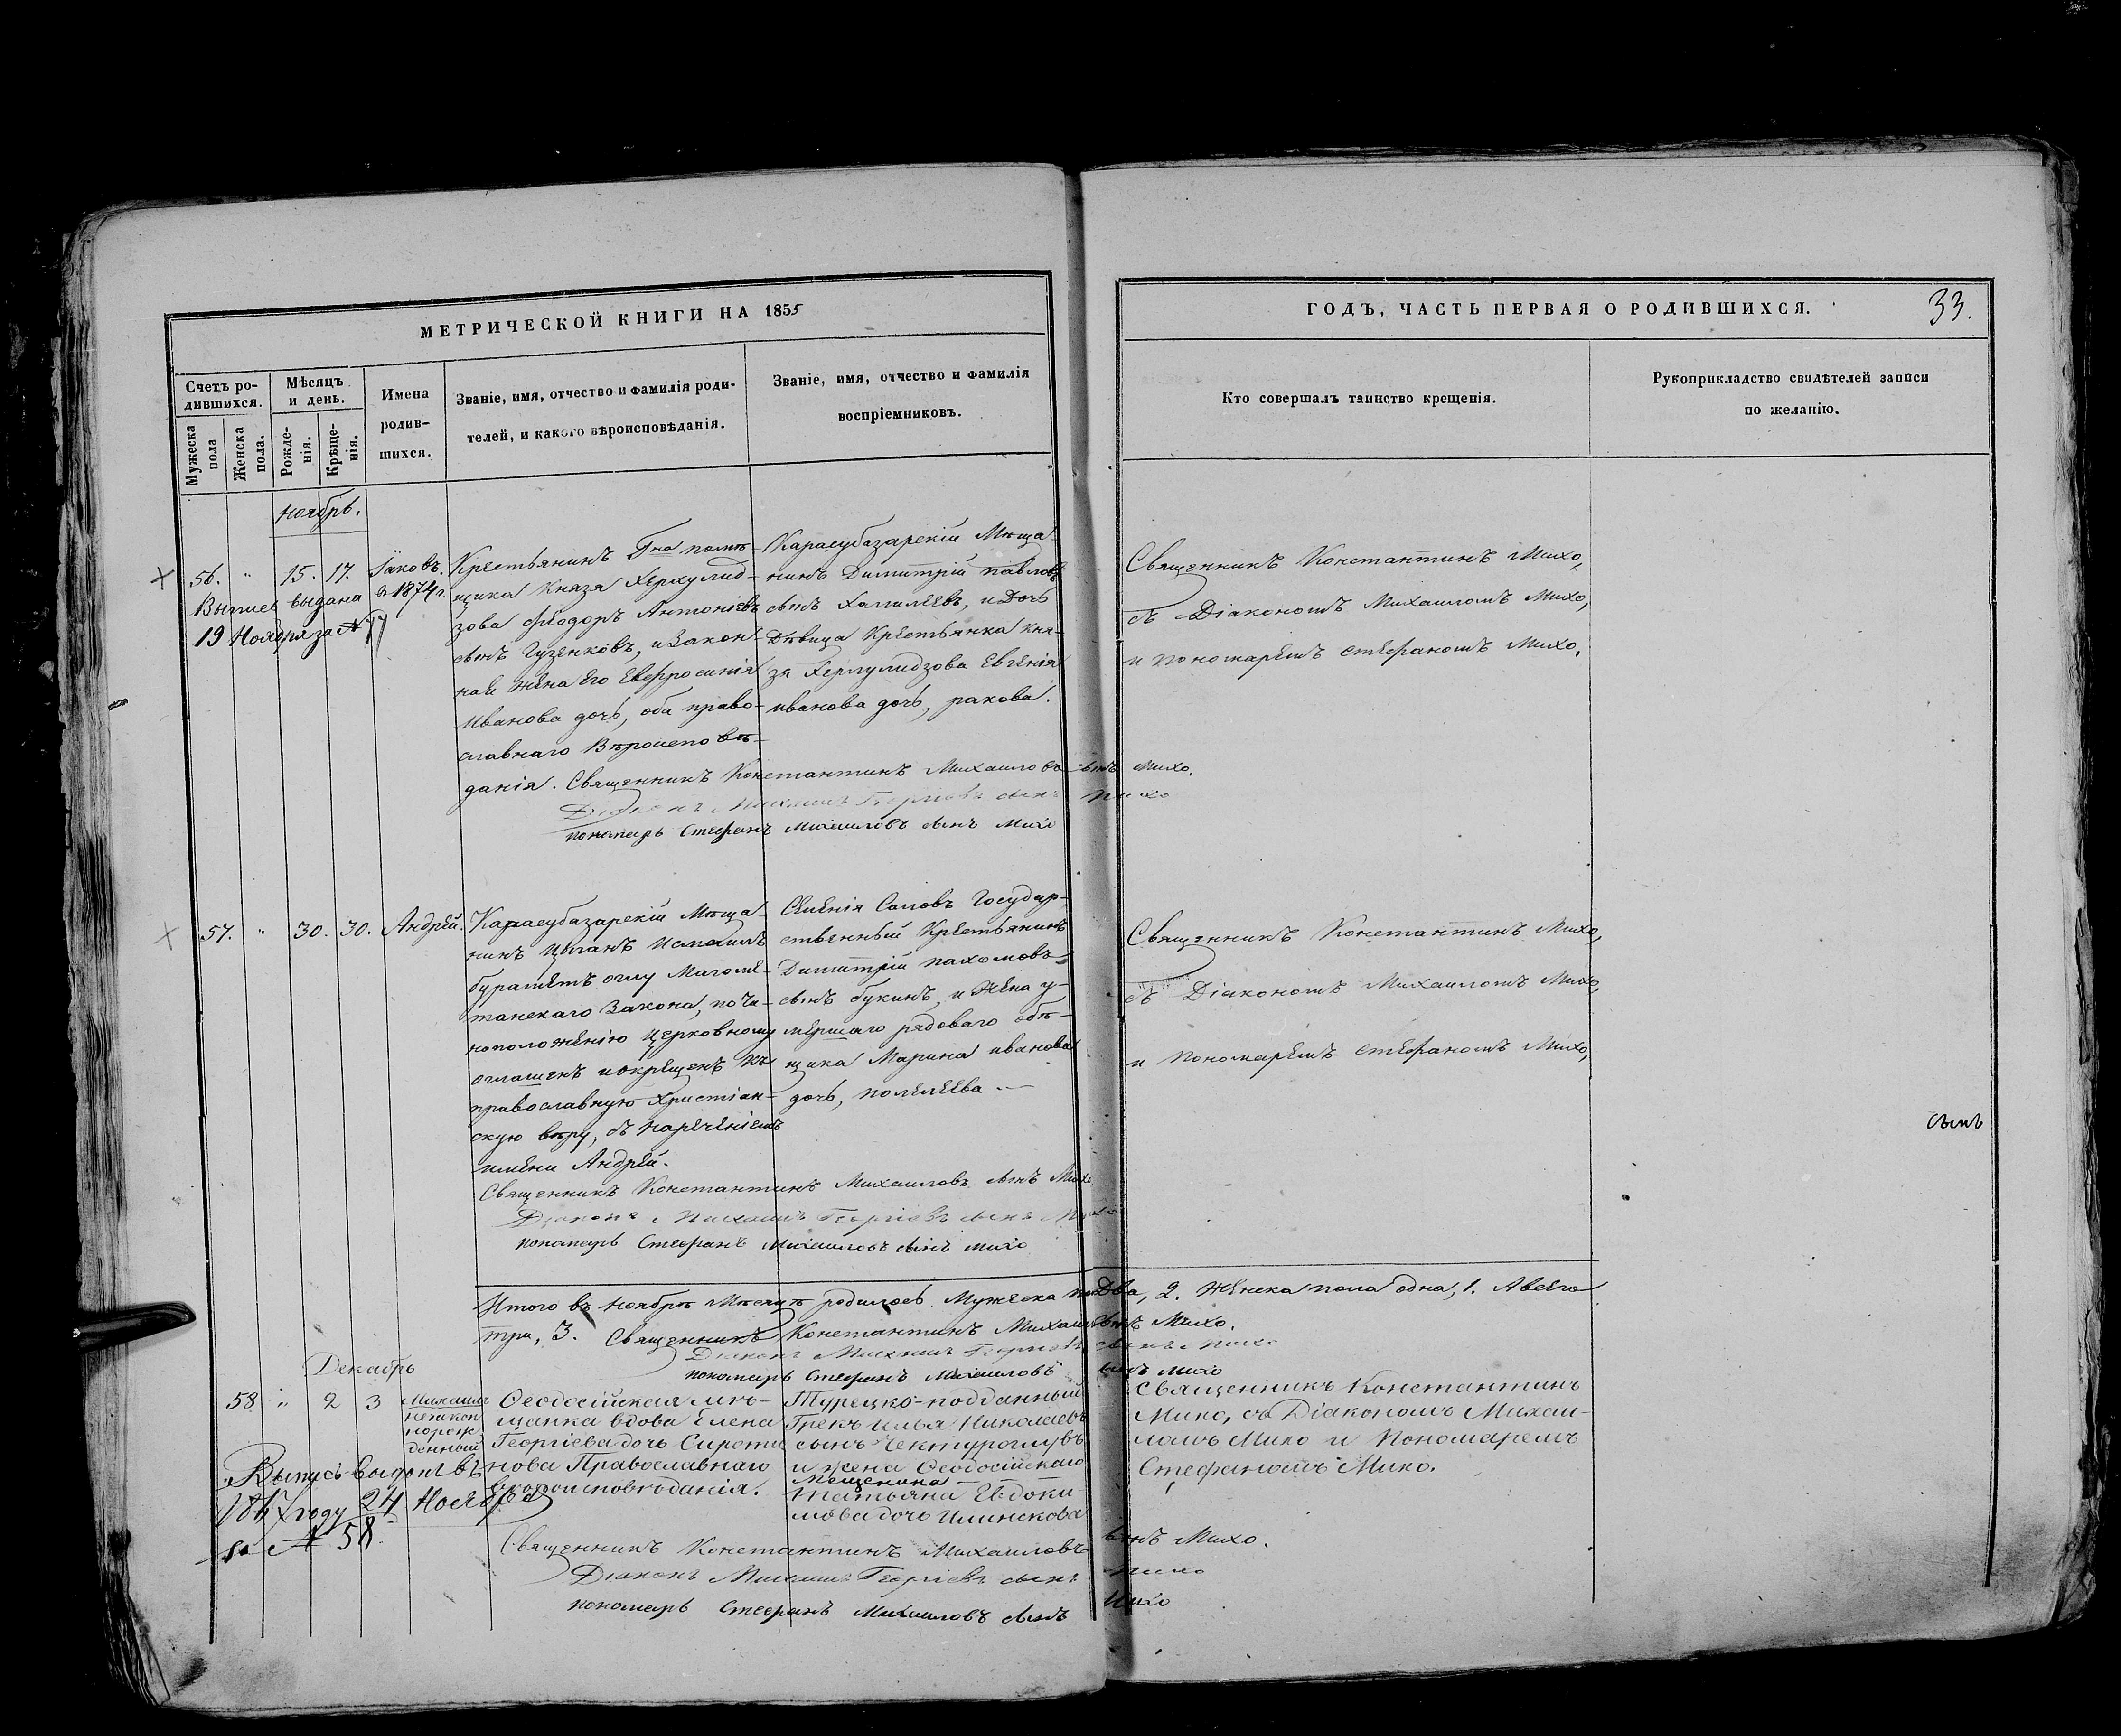 МЕТРИЧЕСКОЙ КНИГИ НА 1855
ГОДЪ, ЧАСТЬ ПЕРВАЯ О РОДИВШИХСЯ.
33.
Счетъ ро-
дившихся.
Мужеска
пола
Женска
пола.
Мѣсяцъ
и день.
Рожде-
нія.
Креще-
нія.
Имена
родив-
шихся.
Званіе, имя, отчество и фамилія роди-
телей, и какого вѣроисповѣданія.
Званіе, имя, отчество и фамилія
воспріемниковъ.
Кто совершалъ таинство крещенія.
Рукоприкладство свидѣтелей записи
по желанію.
Ноябрь.
56. " 15. 17. Іаковъ.
Выпись выдана в 1874 г.
19 Ноября за № 77
Крестьянинъ Гна помѣ-
щика Князя Херхулид-
зова Ѳеодоръ Антоніевъ
сынъ Гуденковъ, и Закон-
ная жена его Евфросинія
Иванова дочь, оба право-
славнаго Вѣроисповѣ-
данія.
Карасубазарскій Мѣща-
нинъ Димитрій павловъ
сынъ Халилеевъ, и Дочь
Дѣвица Крестьянка Кня-
зя Херхулидзова Евгенія
иванова дочь, ракова.
Священникъ Константинъ Михо,
съ Діакономъ Михаиломъ Михо,
и пономаремъ Стефаномъ Михо.
Священникъ Константинъ Михаиловъ сынъ Михо.
Діаконъ Михаилъ Георгіевъ сынъ Михо
пономарь Стефанъ Михаиловъ сынъ Михо
57. " 30. 30. Андрей.
Карасубазарскій Мѣща-
нинъ Цыганъ Исмаилъ
бураметъ оглу Магоме-
танскаго Закона, по Чи-
ноположенію Церковному
оглашенъ и окрещенъ въ
православную Христіан-
скую вѣру, съ нареченіемъ
имени Андрей.
Селенія Саловъ Государ-
ственный Крестьянинъ
Димитрій пахомовъ
сынъ букинъ, и Жена у-
мершаго рядоваго объ-
щика Марина иванова
дочь, полелеева
Священникъ Константинъ Михо,
съ Діакономъ Михаиломъ Михо,
и Пономаремъ Стефаномъ Михо,
сынъ
Священникъ Константинъ Михаиловъ сынъ Михо
Діаконъ Михаилъ Георгіевъ сынъ Михо
пономарь Стефанъ Михаиловъ сынъ михо
Итого въ Ноябрѣ Мѣсяцѣ родилось Мужеска по Два, 2. Женска пола одна, 1. А всего
три, 3. Священникъ Константинъ Михаил сынъ Михо.
Діаконъ Михаилъ Георгіевъ сынъ Михо
пономарь Стефанъ Михаиловъ сынъ михо
Декабрь
58 " 2 3 Михаилъ
незакон
норож
денный
Ѳеодосійская мѣ-
щанка вдова Елена
Георгіева дочь Сироти
нова Православнаго
вѣроисповѣданія.
Турецко-подданный
Грекъ Илья Николаевъ
сынъ Чектуроглувъ
и жена Ѳеодосійскаго
мещенина
Татьяна Евдоки-
мова дочь Илинскова
Священникъ Константинъ
Михо, съ Діакономъ Михаи-
ломъ Михо и Пономаремъ
Стефаномъ Михо.
Выпись выдана въ
1867 году 24 Ноября
за № 58.
Священникъ Константинъ Михаиловъ сынъ Михо.
Діаконъ Михаилъ Георгіевъ сынъ Михо
пономарь Стефанъ Михаиловъ сынъ Михо